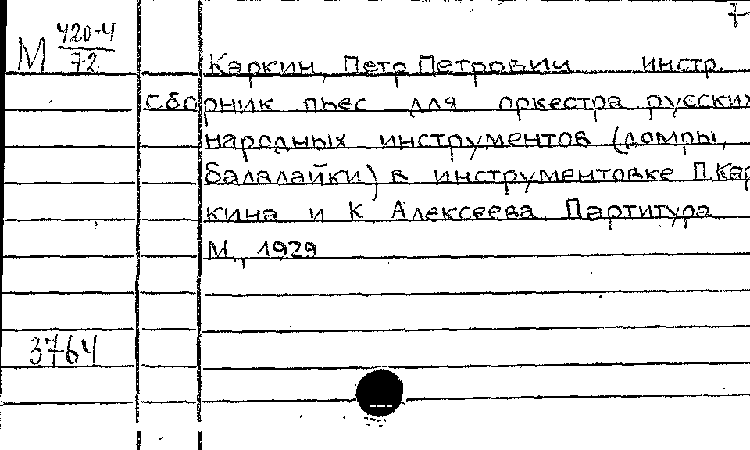 7
М 420-4
72
Каркин, Петр Петрович инстр.
Сборник пьес для оркестра русских
народных инструментов (домры,
балалайки) в инструментовке П.Кар
кина и К Алексеева. Партитура
М., 1929
3764